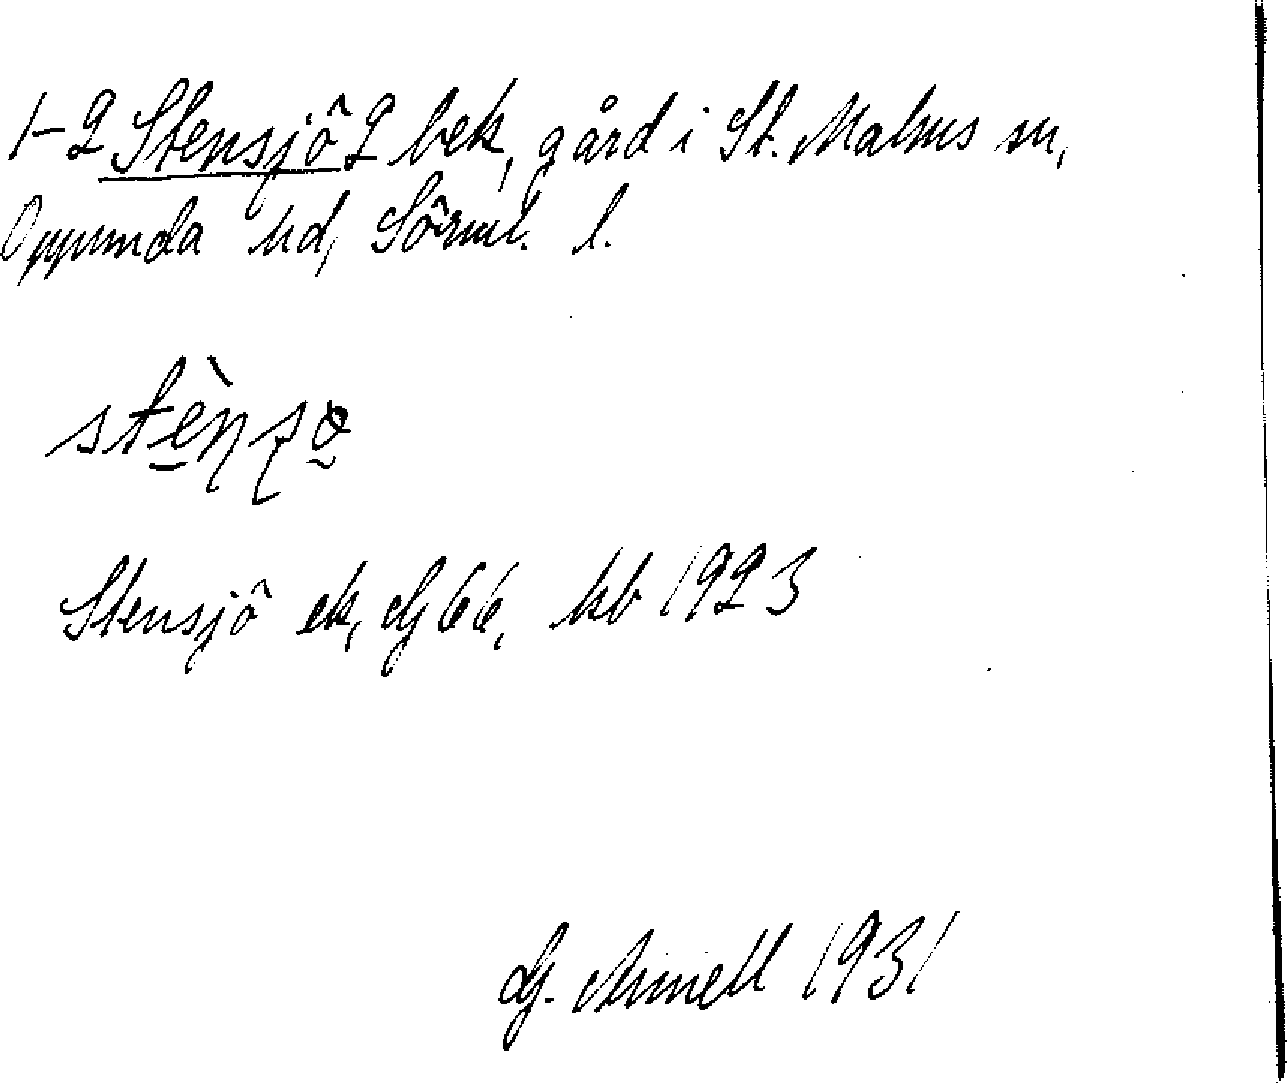 1-2 Stensjö 2 bek, gård i St. Malms sn,
Oppunda hd, Sörml. l.
stènsö
Stensjö ek, Gj 66, kb 1923
Gj. Arinell 1931